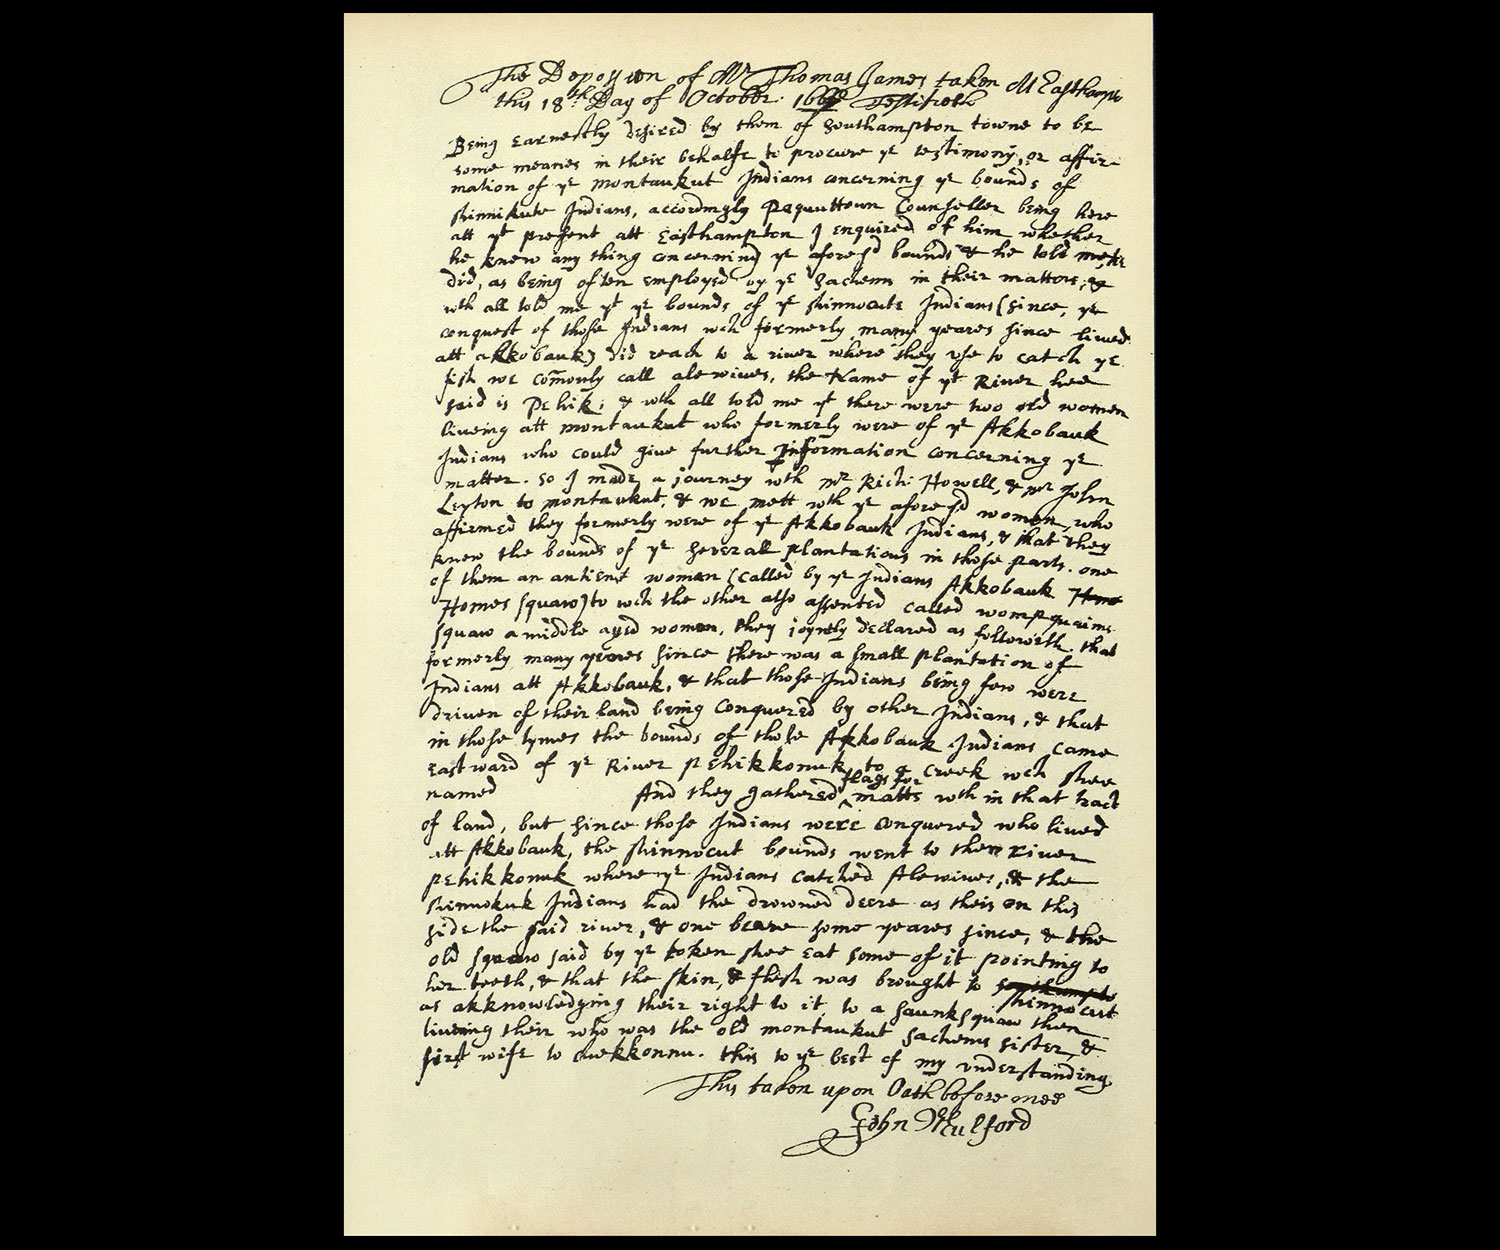 The Deposition of Mr Thomas James taken At Easthampto
this 18th Day of October Testifieth
Being Earnestly desired by them of Southampton towne to be
some meanes in their behalfe to procure ye testimony, or affir-
mation of ye montaukut Indians concerning ye bounds of
shinnikute Indians, accordingly Pequuttoun Counseller being here
att yt present att Easthampton I enquired of him whether
he knew any thing concerning ye aforesd bounds & he told me, he
did, as being often employed by ye Sachem in their matters, &
wth all told me yt ye bounds of ye shinnocuts Indians (since, ye
conquest of those Indians wch formerly many yeares since lived
att akkobauk) did reach to a river where they vse to catch ye
fish we comonly call alewives, the Name of yt River hee
said is Pehik; & wth all told me yt there were two old women
liveing att montaukut who formerly were of ye Akkobauk
Indians who could give further information concerning ye
matter. So I made a journey wth mr Rich: Howell, & mr John
Leyton to montaukut, & we mett wth ye aforesd women, who
affirmed they formerly were of ye Akkobauk Indians, & that they
knew the bounds of ye severall plantations in those parts. one
of them an antient woman (called by ye Indians Akkobauk Home
Homes squaw) to wch the other also assented called wompquaims
squaw a middle aged woman, they joyntly declared as followeth. that
formerly many yeares since there was a small plantation of
Indians att Akkobauk, & that those Indians being few were
driven of their land being Conquered by other Indians, & that
in those tymes the bounds of those Akkobauk Indians came
Eastward of ye River pehikkonuk to a Creek wch shee
named And they gathered flags for matts wth in that tract
of land, but since those Indians were conquered who lived
att Akkobauk, the shinnocut bounds went to the river
pehikkonuk where ye Indians catched Alewives, & the
shinnokuk Indians had the drowned deere as theirs on this
side the said river, & one beare some yeares since, & the
old squaw said by ye token shee eat some of it pointing to
her teeth, & that the skin, & flesh was brought to southampto shinnocut
as akknowledging their right to it, to a saunk squaw then
liveing their who was the old montaukut sachems sister, &
first wife to awkkonnu. this to ye best of my vnderstanding
This taken upon Oath before mee
John Mulford